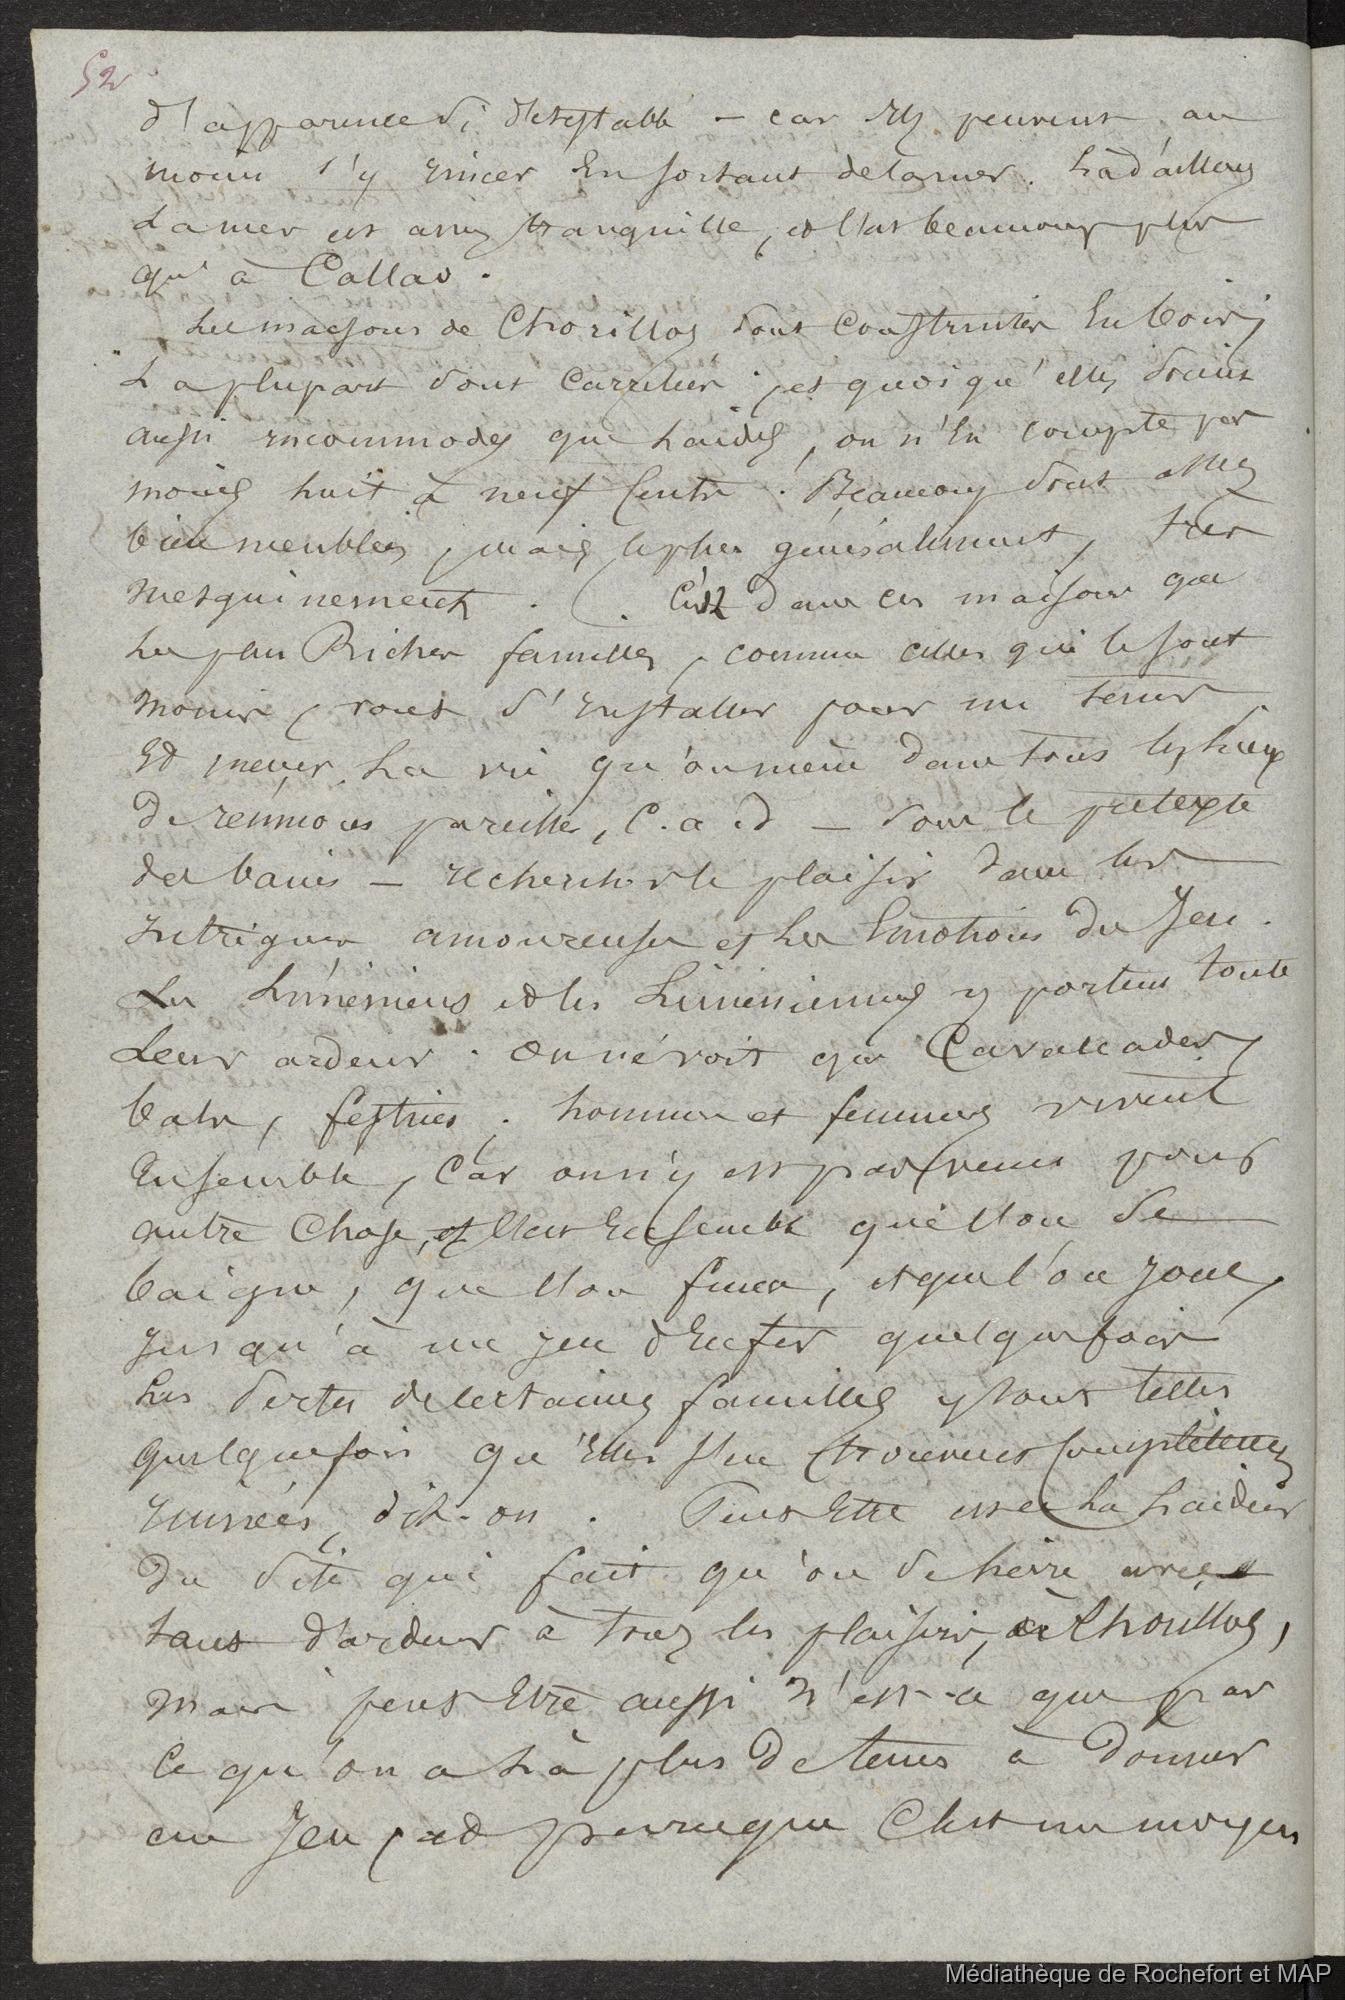 52
d'apparence si détestable — car ils peuvent au
moins s'y rincer en sortant de la mer. Là d'ailleurs
La mer est assez tranquille, et l'est beaucoup plus
qu'à Callao.
Les maisons de Chorillos sont construites en bois,
La plupart sont carrées, et quoiqu'elles soient
aussi incommodes que laides, on n'en compte pas
moins huit à neuf cents. Beaucoup sont assez
bien meublées, mais le plus généralement, très
mesquinement. C'est dans ces maisons que
les plus Riches familles, comme celles qui le sont
moins, vont s'installer pour un tems
Et mener la vie qu'on mène dans tous les lieux
de réunions pareilles, c. a. d — sous le pretexte
des bains — rechercher le plaisir dans les
intrigues amoureuses et les Emotions du Jeu.
Les Liméniens et les Liméniennes y portent toute
Leur ardeur. on ne voit que Cavalcades,
bals, festins. hommes et femmes vivent
Ensemble, Car on n'y est pas venus pour
autre Chose, et c'est Ensemble que l'on se
baigne, que l'on fume, et que l'on joue,
Jusqu'à un jeu d'Enfer quelquefois
Les pertes de certaines familles y sont telles
quelquefois qu'Elles s'en trouvent complètement
ruinées, dit-on. Peut Etre est-ce la laideur
du site qui fait qu'on se livre avec
tant d'ardeur à tous les plaisirs, à Chorillos,
mais peut Etre aussi n'est-ce que par
ce qu'on a là plus de tems à donner
au Jeu, et parceque C'est un moyen
Médiathèque de Rochefort et MAP